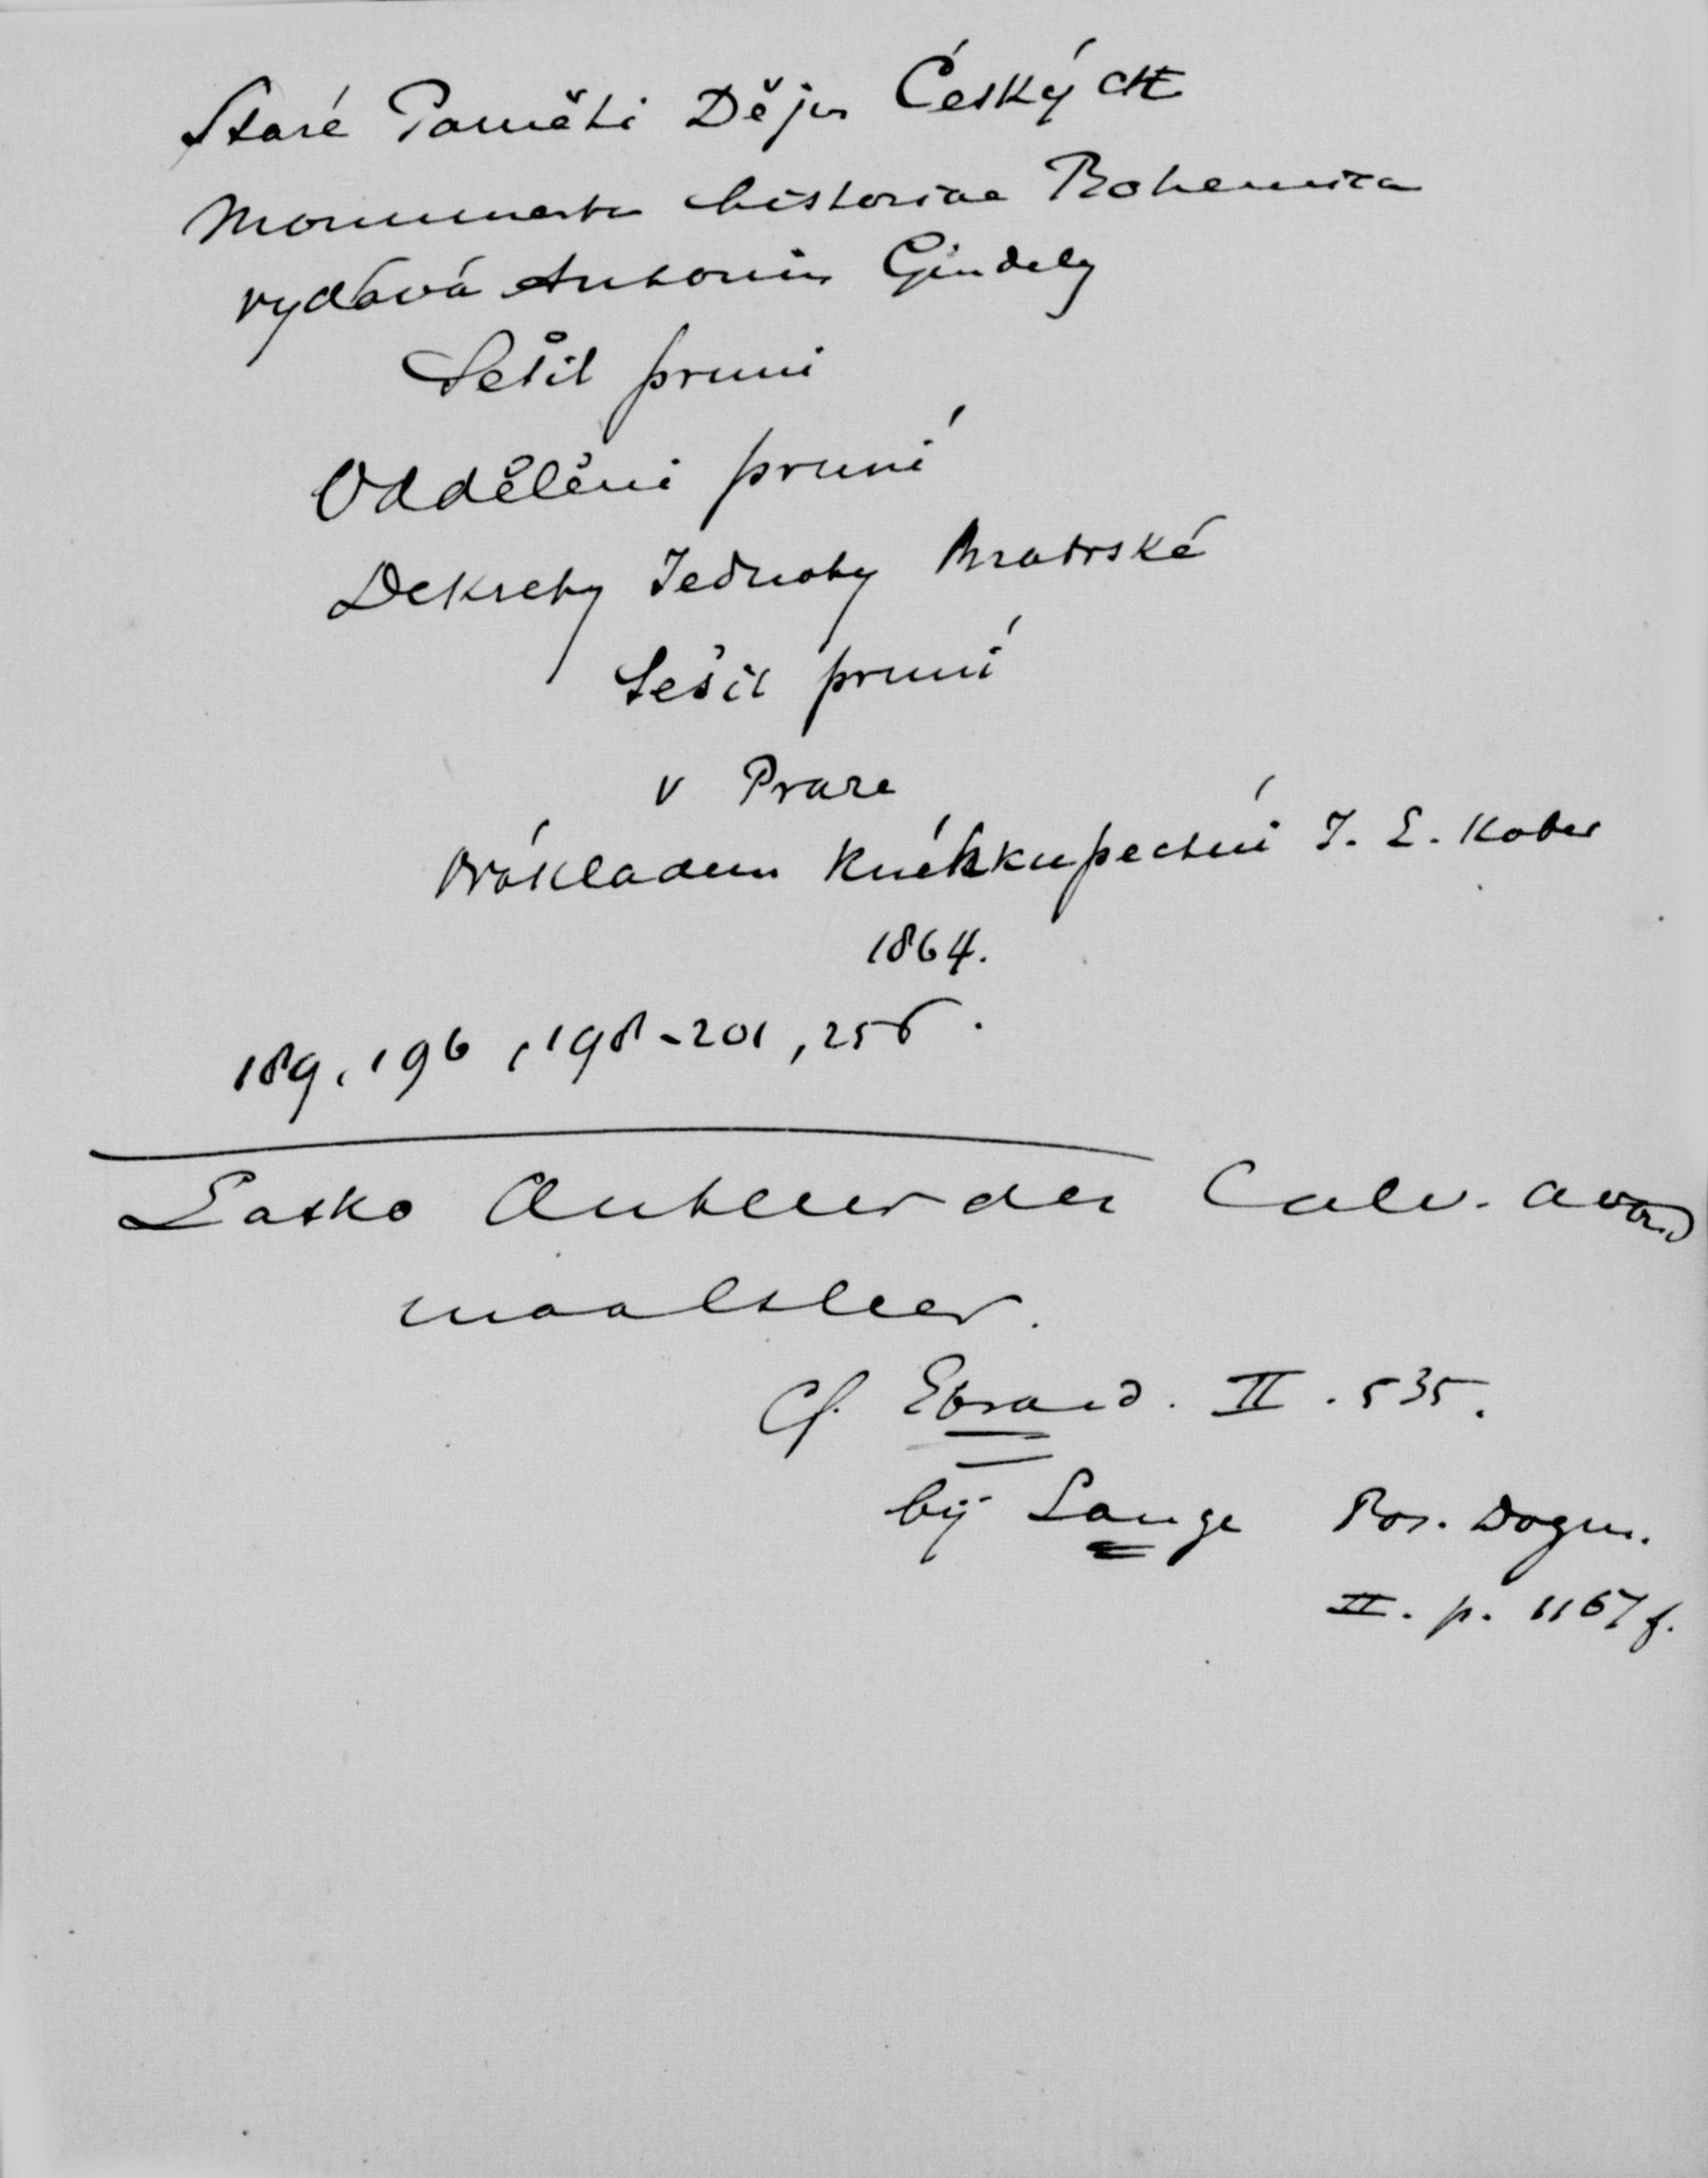 Staré Paměti Dějin Českých
Monumenta historiae Bohemica
vydává Antonin Gindely
Sešit prvni
Oddělěni první
Dekrety Jednoty Bratrské
Sešit první
v Praze
Nákladem kněhkupectví I. L. Kober
1864.
189, 196, 198-201, 256.
Lasko Auteur der Calv. avond
maalsleer.
Cf. Ebrard. II. 535.
bij Lange Pos. Dogm.
II. p. 1167 f.